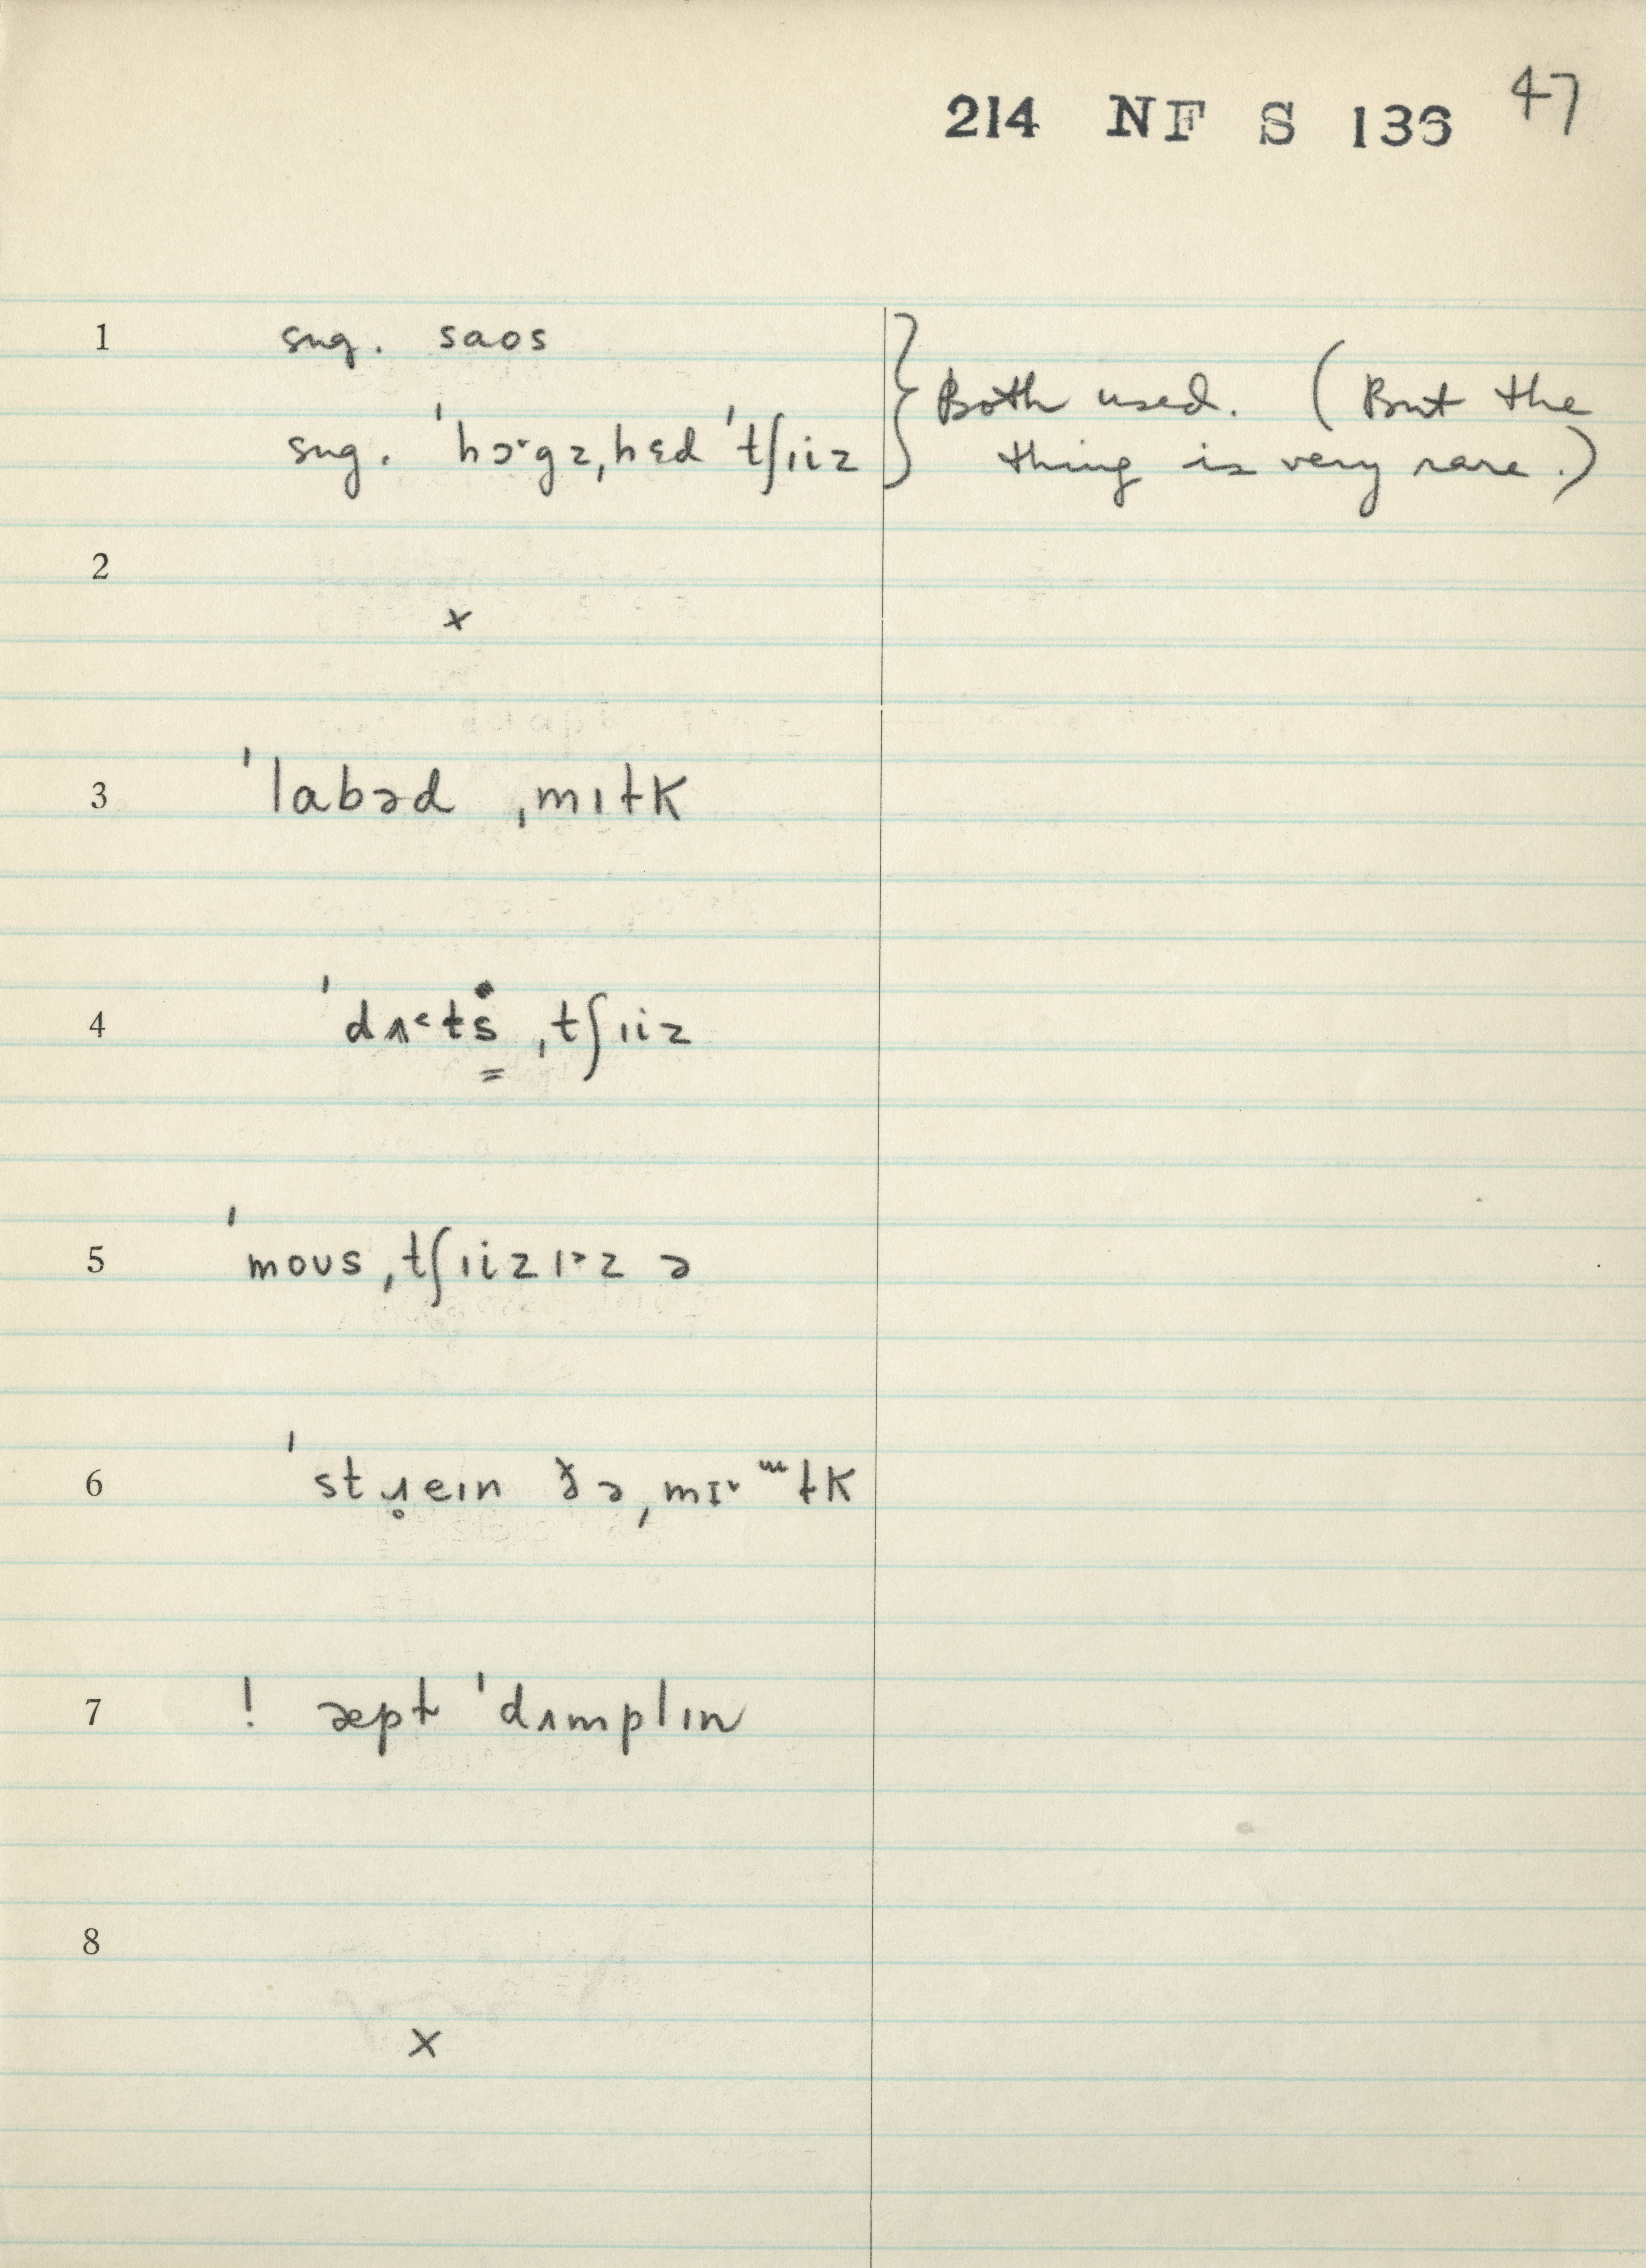 214 NF S 136 47
1 sug. saos
sug. ˈhɔ˞gz,hɛd ˈtʃɪiz } Both used. (But the
thing is very rare.)
2
×
3 ˈlabəd ˌmɪɫk
4 ˈdʌ˂tṡ ˌtʃɪiz
5 ˈmoʊs ˌtʃɪiz ɪ˃z ə
6 ˈstɹ̥eɪn ð̆ə ˌmɪ˅ɯɫk
7 ! æpɫ ˈdʌmplɪn
8
×